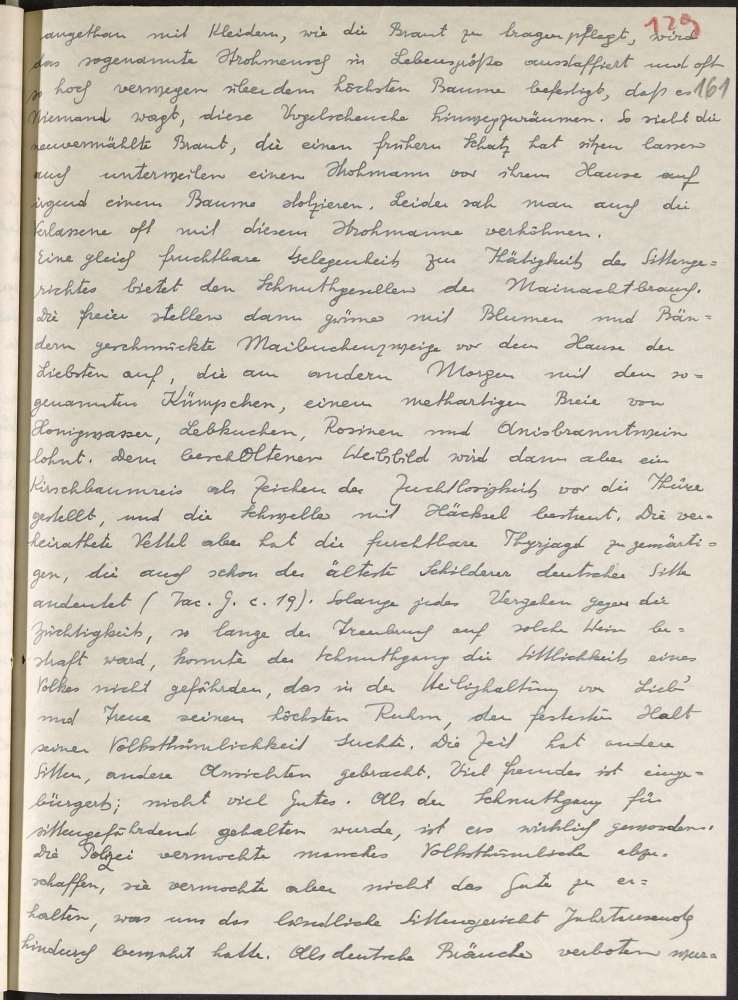 129
angethan mit Kleidern, wie die Braut zu tragen pflegt, wird
das sogenannte Strohmensch in Lebensgröße ausstaffiert und oft
so hoch verwegen über dem höchsten Baume befestigt, daß es 161
Niemand wagt, diese Vogelscheuche hinwegzuräumen. So sieht die
neuvermählte Braut, die einen frühern Schatz hat sitzen lassen
auch unterweilen einen Strohmann vor ihrem Hause auf
irgend einem Baume stolzieren. Leider sah man auch die
Verlassene oft mit diesem Strohmanne verhöhnen.
Eine gleich fruchtbare Gelegenheit zur Thätigkeit des Sittenge=
richtes bietet den Schnuthgesellen der Mainachtbrauch.
Die Freier stellen dann grüne mit Blumen und Bän=
dern geschmückte Maibuchenzweige vor dem Hause der
Liebsten auf, die am andern Morgen mit dem so=
genannten Kümpchen, einem methartigen Breie von
Honigwasser, Lebkuchen, Rosinen und Anisbranntwein
lohnt. Dem bescholtenen Weibsbild wird dann aber ein
Kirschbaumreis als Zeichen der Zuchtlosigkeit vor die Thüre
gestellt, und die Schwelle mit Häcksel bestreut. Die ver=
heirathete Vettel aber hat die furchtbare Thyrjagd zu gewärti=
gen, die auch schon der älteste Schilderer deutscher Sitte
andeutet (Tac. G. c. 19). Solange jedes Vergehen gegen die
Züchtigkeit, so lange der Treubruch auf solche Weise be=
straft ward, konnte der Schnuthgang die Sittlichkeit eines
Volkes nicht gefährden, das in der Heilighaltung von Lieb'
und Treue seinen höchsten Ruhm, den festesten Halt
seiner Volksthümlichkeit suchte. Die Zeit hat andere
Sitten, andere Ansichten gebracht. Viel fremdes ist einge=
bürgert; nicht viel Gutes. Als der Schnuthgang für
sittengefährdend gehalten wurde, ist er es wirklich geworden.
Die Polizei vermochte manches Volksthümliche abzu=
schaffen, sie vermochte aber nicht das Gute zu er=
halten, was uns das ländliche Sittengericht Jahrtausende
hindurch bewahrt hatte. Als deutsche Bräuche verboten wur=